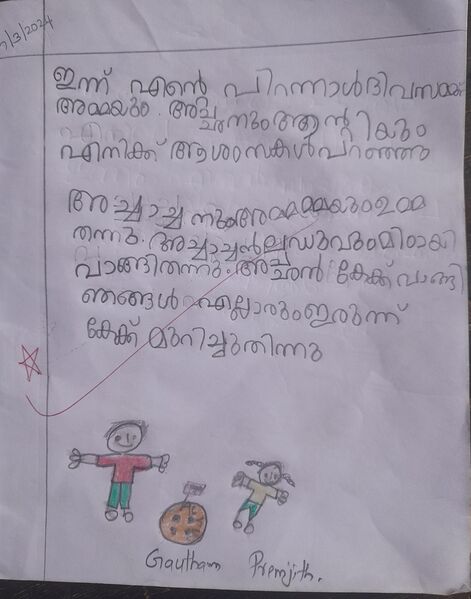 /3/2024
ഇന്ന് എന്റെ പിറന്നാൾദിവസമ
അമ്മയും. അച്ഛനും ആന്റിയും
എനിക്ക് ആശംസകൾ പറഞ്ഞു
അച്ചാച്ചനും അമ്മമ്മയും ഉമ്മ
തന്നു. അച്ചാച്ചൻ ലഡുവും മിഠായി
വാങ്ങിതന്നു. അച്ഛൻ കേക്ക് വാങ്ങി
ഞങ്ങൾ എല്ലാരും ഇരുന്ന്
കേക്ക് മുറിച്ചുതിന്നു
Gautham Premjith.